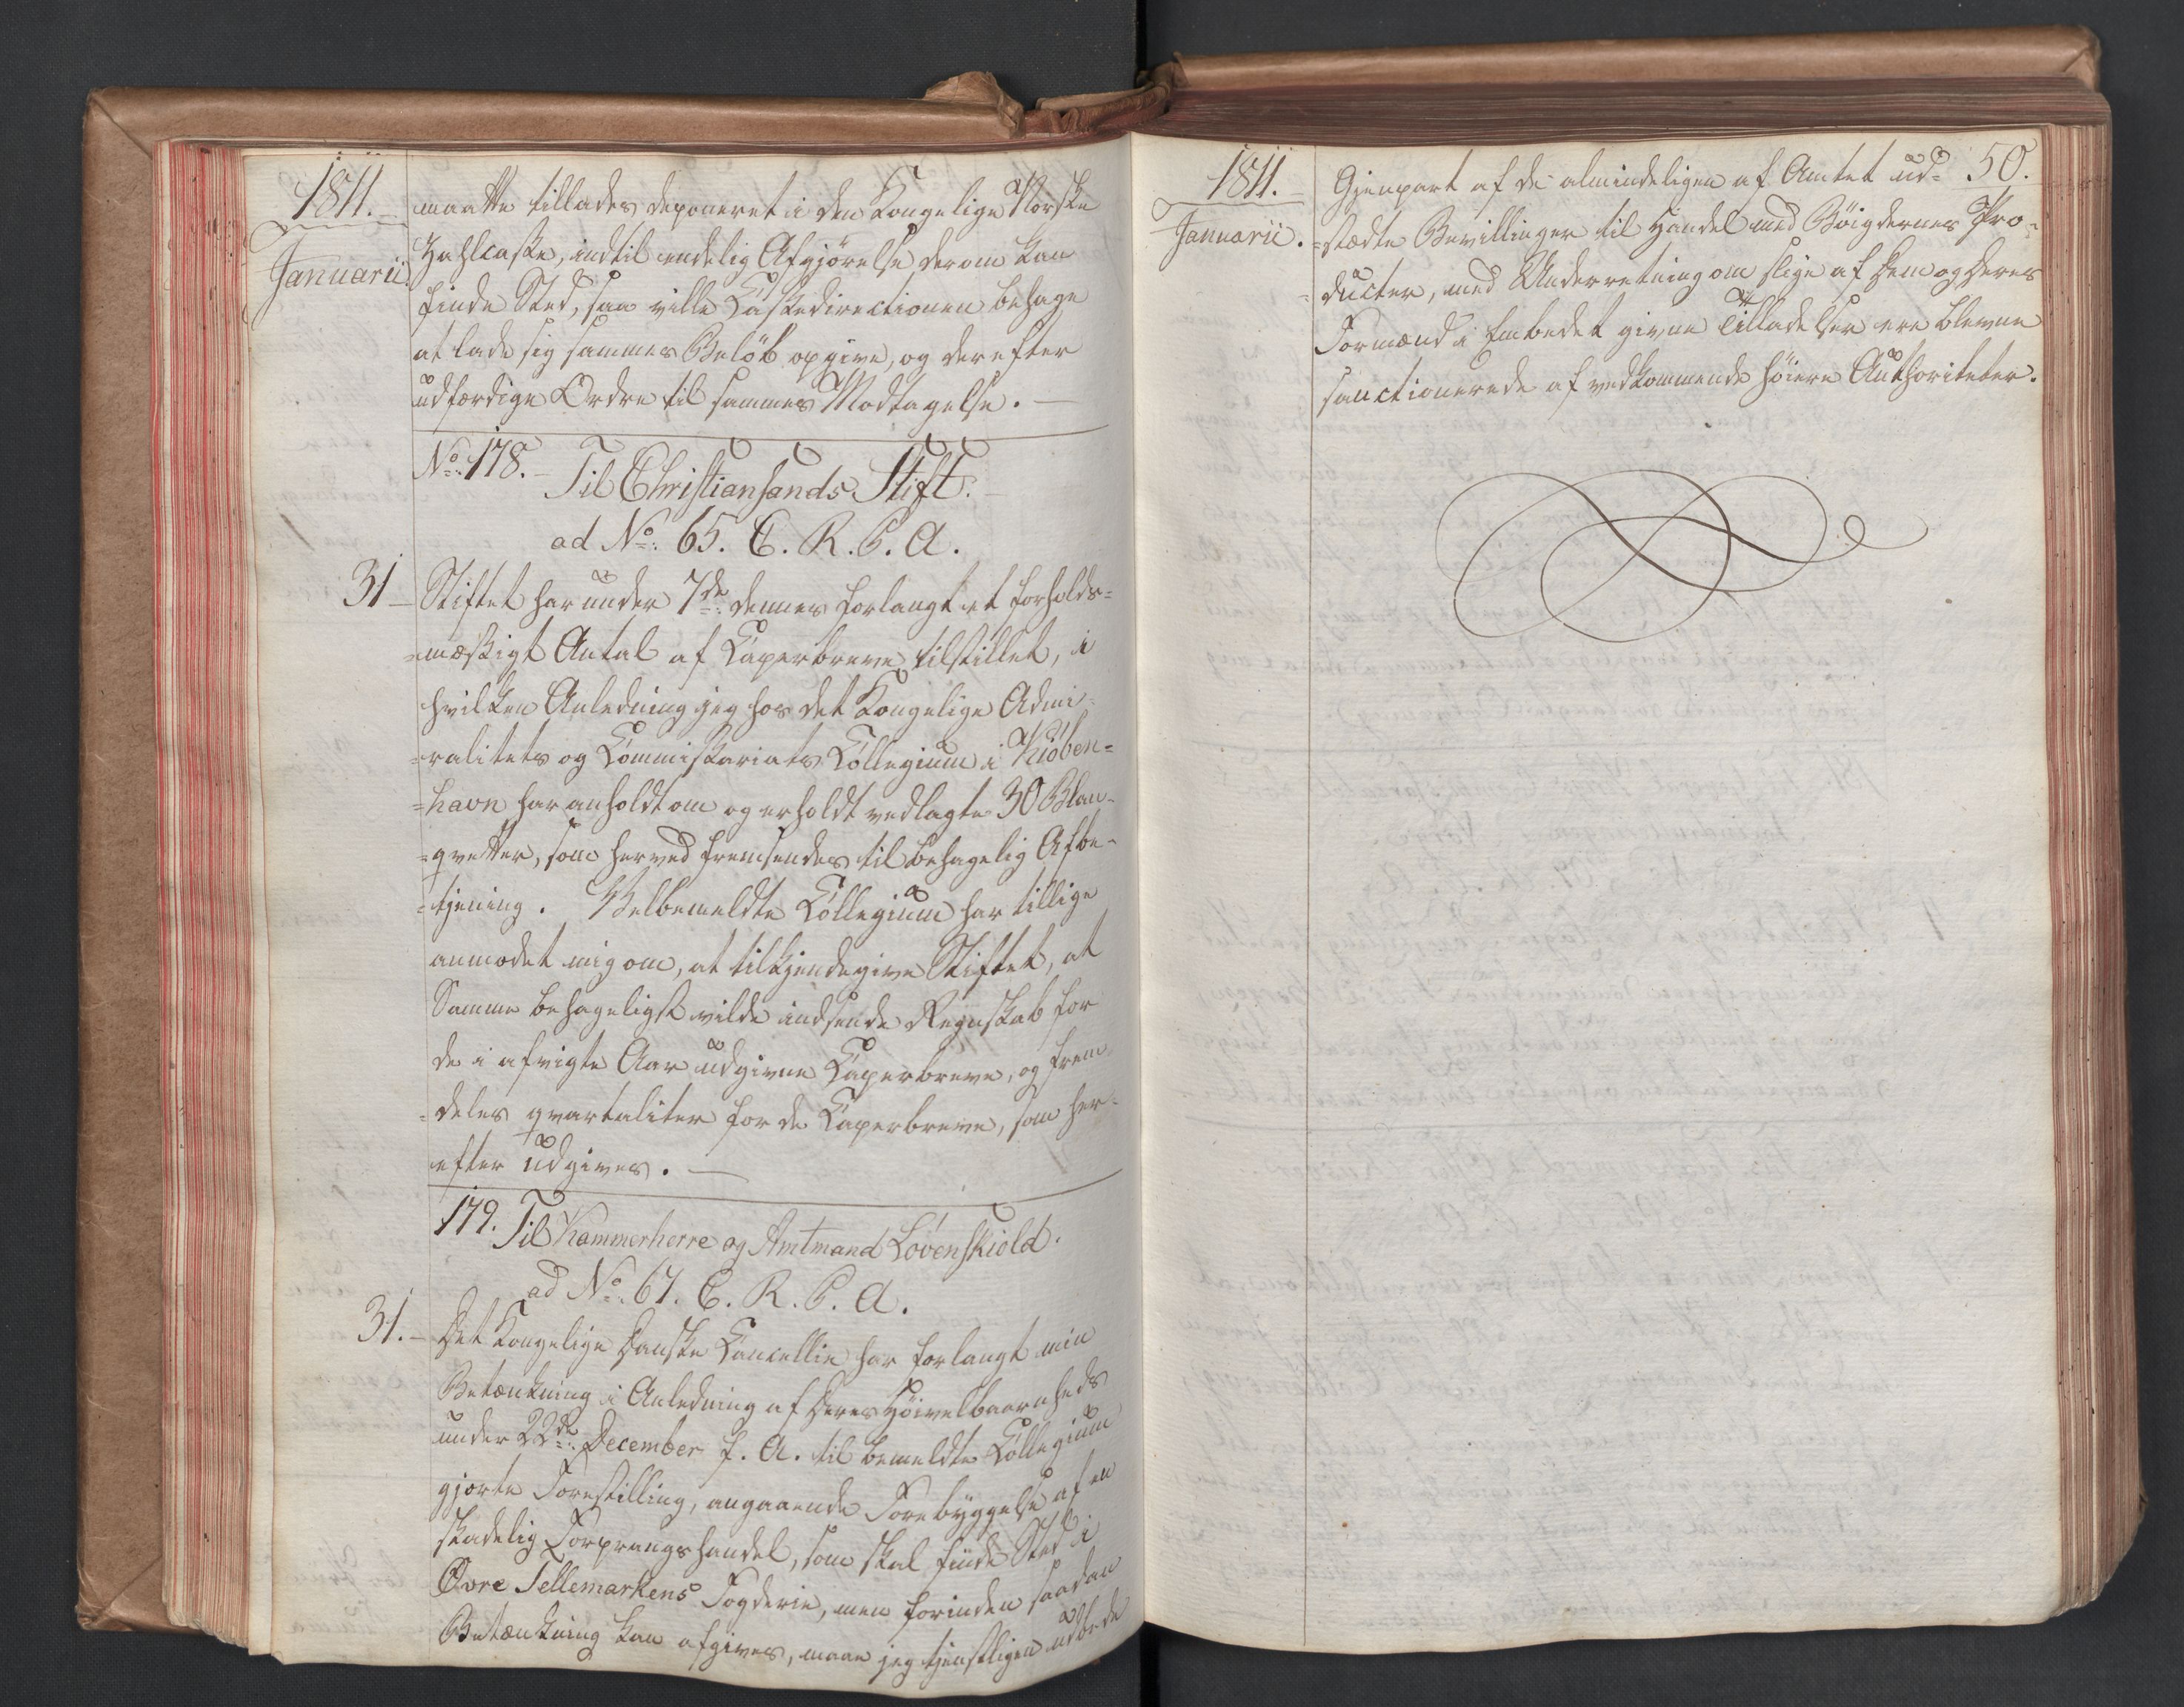 1811.
Januarii
maatte tillades deponeret i den Kongelige Norske
Zahlcasse, indtil endelig Afgjörelse derom kan
finde Sted, saa ville Cassedirectionen behage
at lade sig sammes Belöb opgive, og derefter
udfærdige Ordre til sammes Modtagelse. —
No. 178. — Til Christiansands Stift. —
ad No. 65. C. R. P. A.
31 — Stiftet har under 7de dennes forlangt et forholds=
=mæssigt Antal af Caperbreve tilstillet, i
hvilken Anledning jeg hos det Kongelige Admi=
=ralitets og Commissariats Collegium i Kiöben=
=havn har anholdt om og erholdt vedlagte 30 Blan=
=qvetter, som herved fremsendes til behagelig Afbe=
=tjening. Velbemeldte Collegium har tillige
anmodet mig om, at tilkjendegive Stiftet, at
Samme behageligst vilde indsende Regnskab for
de i afvigte Aar udgivne Caperbreve, og frem=
=deles qvartaliter for de Caperbreve, som her=
efter udgives. —
179. Til Kammerherre og Amtmand Lövenskiold.
ad No. 67. C. R. P. A.
31. — Det Kongelige Danske Cancellie har forlangt min
Betænkning i Anledning af Deres Höivelbaarenheds
under 22de December f. A. til bemeldte Collegium
gjorte Forestilling, angaaende Forebyggelse af en
skadelig Forprangshandel, som skal finde Sted i
Övre Tellemarkens Fogderie, men forinden saadan
Betænkning kan afgives, maae jeg tjenstligen udbede
1811.
Januarii.
50.
Gjenpart af de almindeligen af Amtet ud=
=stædte Bevillinger til Handel med Böigdernes Pro=
=ducter, med Underretning om slige af Dem og Deres
Formænd i Embedet givne Tilladelser ere blevne
sanctionerede af vedkommende höiere Authoriteter.